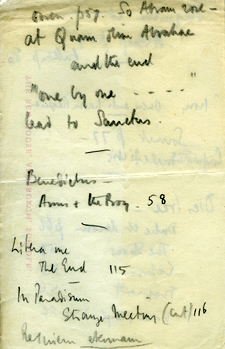 Owen p57. So Abram rose –
at Quam olim Abrahae
and the end
"one by one - - - -"
lead to Sanctus.
Benedictus –
Arms & the Boy 58
Libera me
The End 115
In Paradisum
Strange Meeting (cut) 116
Requiem aeternam